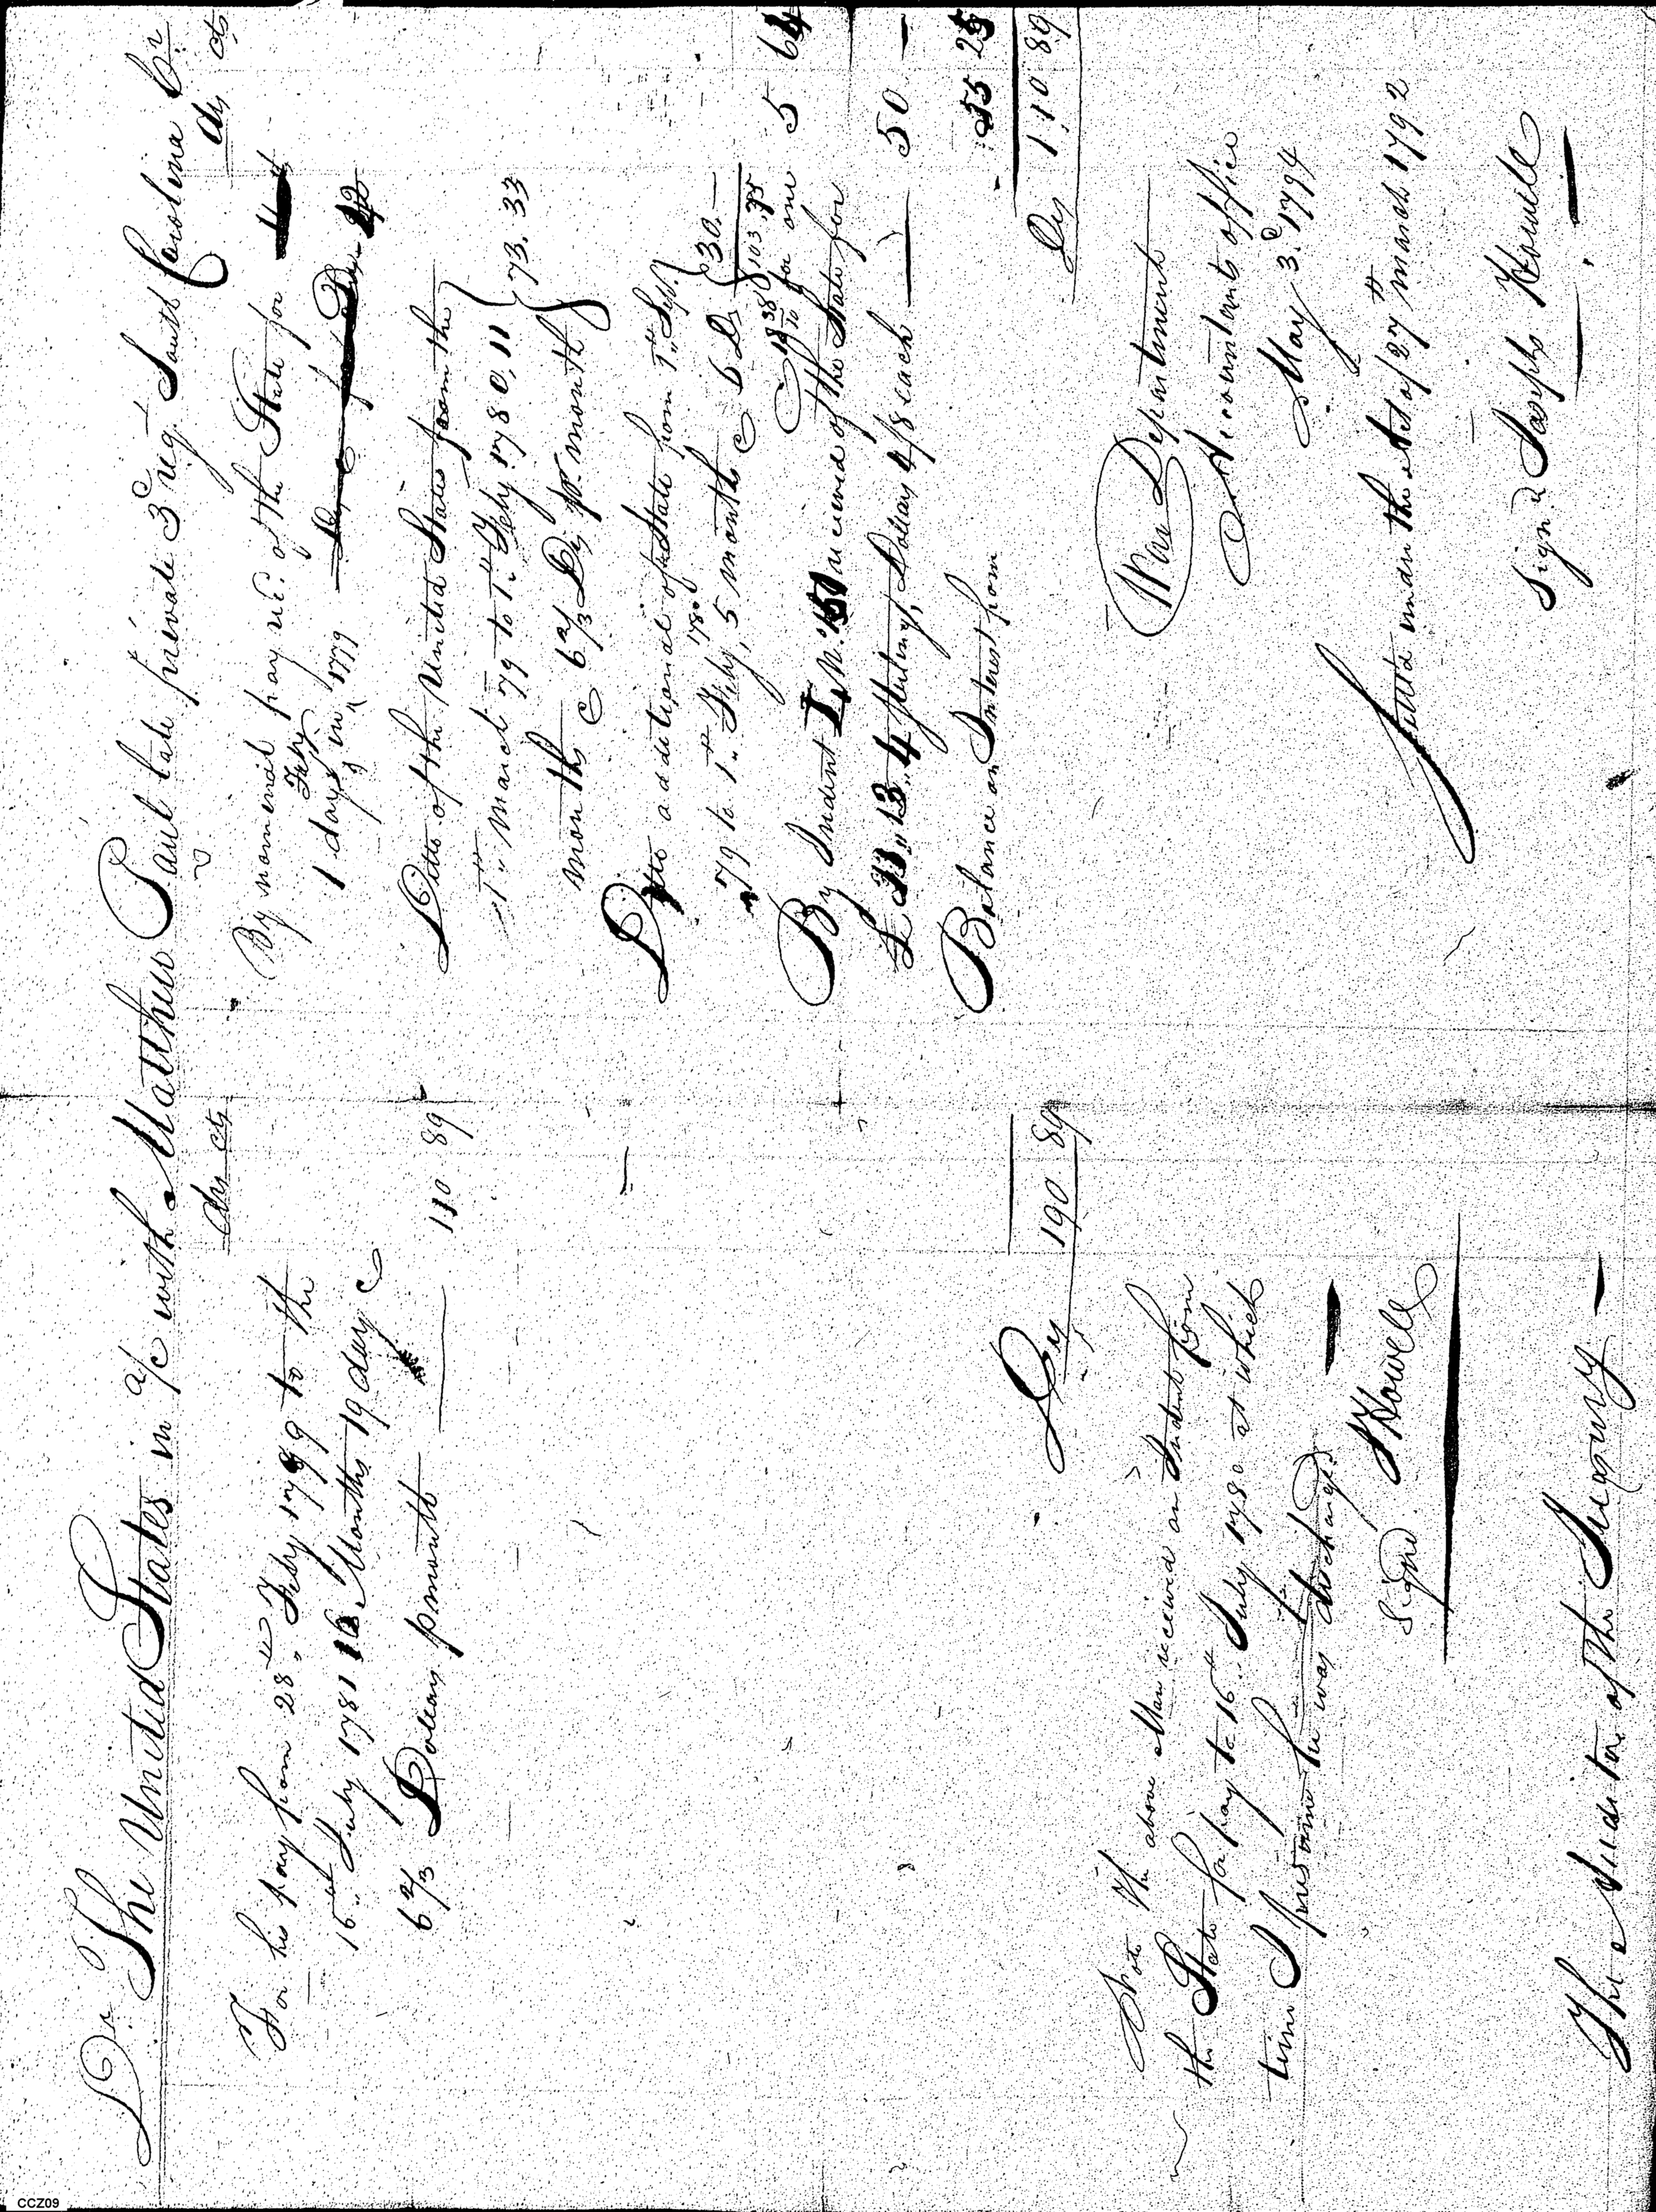 Dr. The United States in a/c with Matthew Paul late private 3d regt. South Carolina Cr
Drs cts
For his pay from 28th Feby 1779 to the
16th July 1781 16 Months 19 days @
6 2/3 Dollars p month 110 89
Drs 190 89
Note The above Man received an Indent from
the State for pay to 16th July 1780 at which
time I presume he was discharged
Signd. J Howell
The Auditor of the Treasury
Drs cts
By nominal pay rec. of the State for
1 day in Feby 1779
Ditto of the United States from the
1st March 79 to 1st Feby 1780, 11
months @ 6 2/3 Drs pr. month 73.33
Ditto additional of the State from 1st Sept.
79 to 1st Feby 1780, 5 months @ 6 Drs 30.—
103.
for one 5 64
By Indent received of the State for
Sterling, Dollars 4/8 each 50 —
Balance on Interest from 55 25
Drs 110 89
War Department
Accountants office
May 3d. 1794
Settled under the Act of 27th March 1792
Signd Joseph Howell
CCZ09